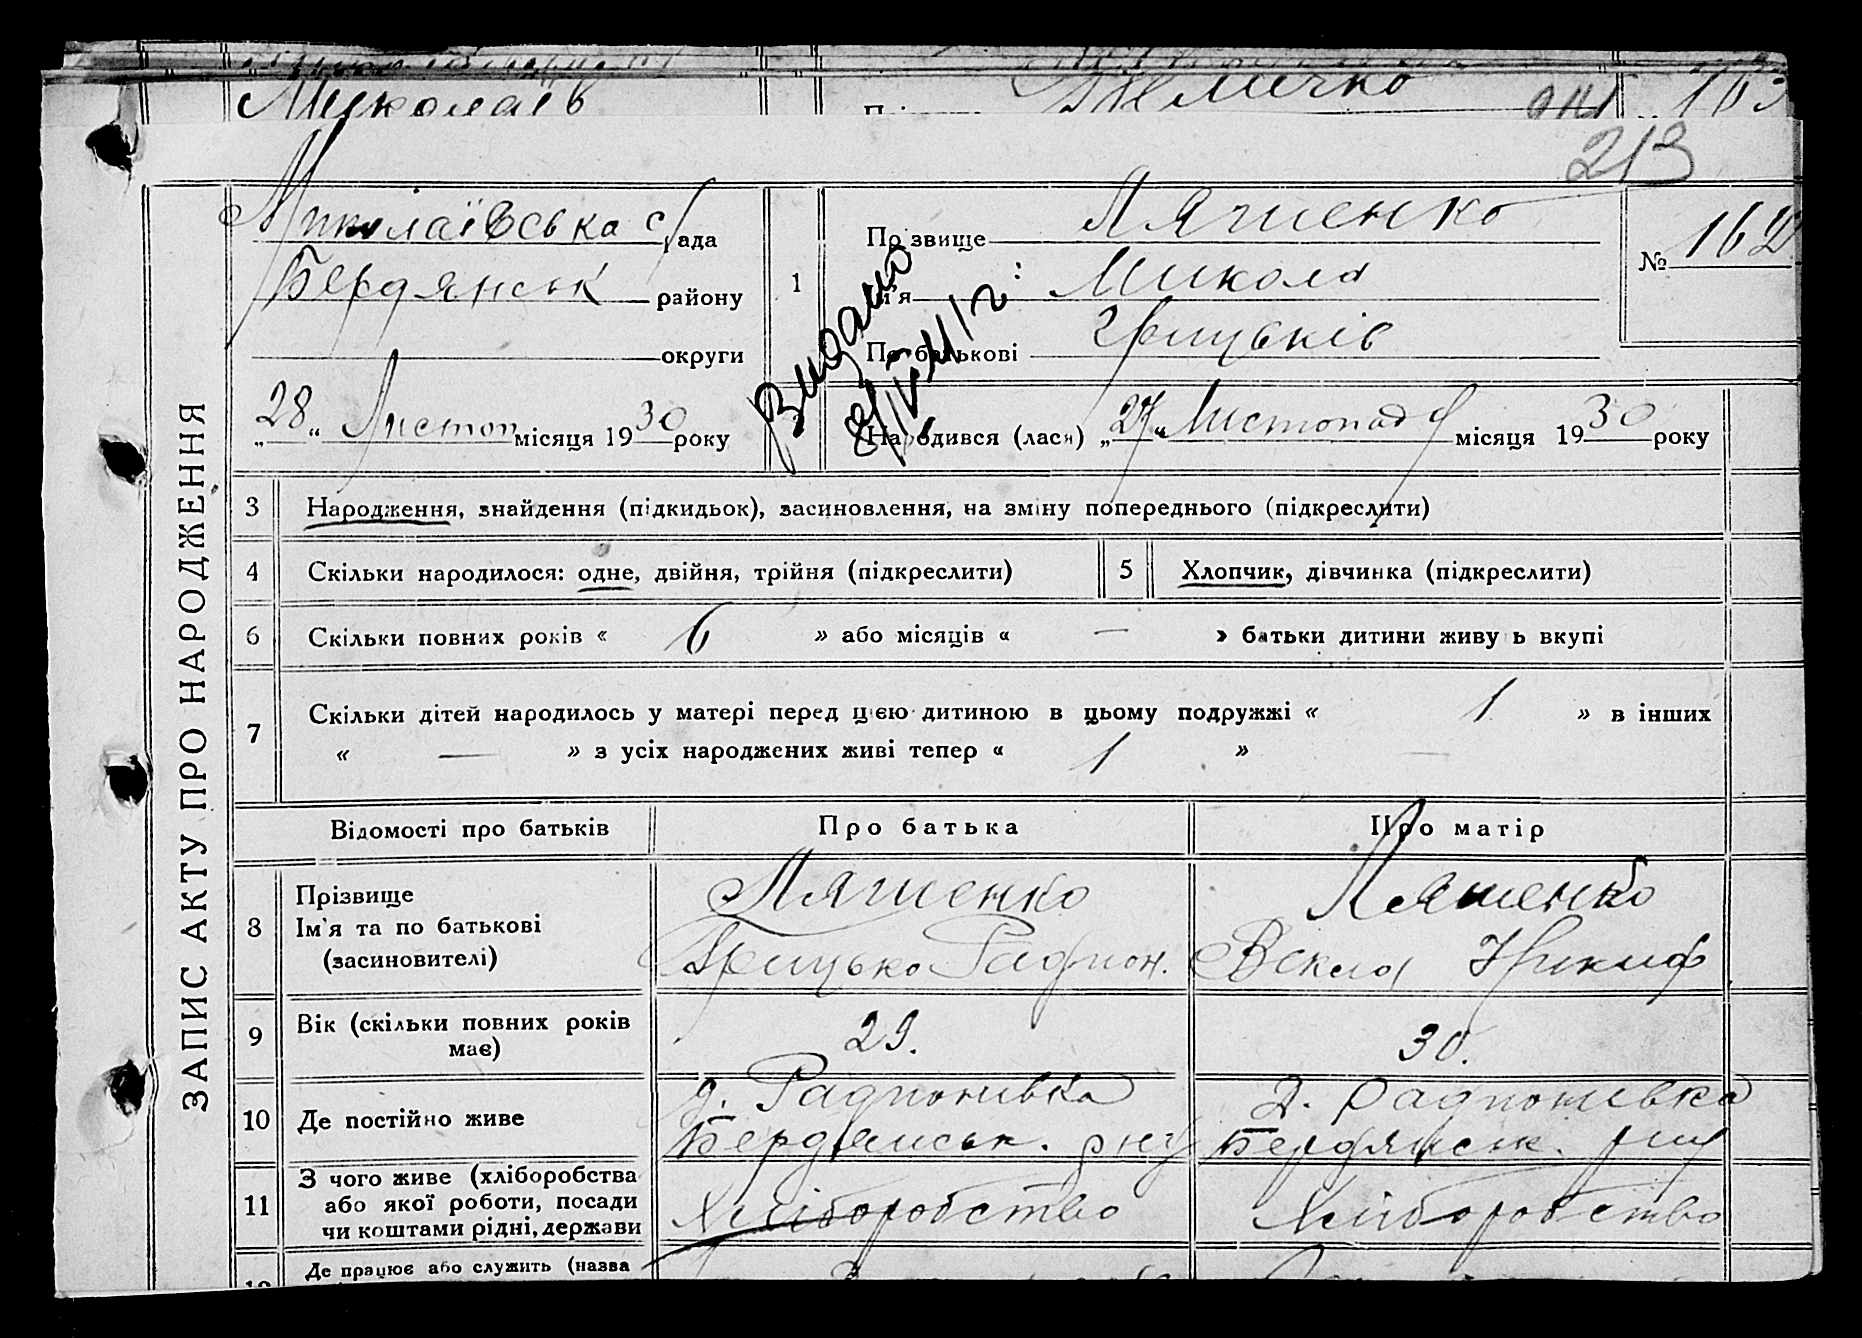 Миколаїв
163
213
Миколаївська с/рада
Бердянськ району
округи
„28“ Листоп місяця 1930 року
1
Прізвище Ляшенко
Ім'я Микола
По батькові Грицьків
№ 162
Видано
Народився (лася) „27“ Листопад місяця 1930 року
ЗАПИС АКТУ ПРО НАРОДЖЕННЯ
3 Народження, знайдення (підкидьок), засиновлення, на зміну попереднього (підкреслити)
4 Скільки народилося: одне, двійня, трійня (підкреслити) 5 Хлопчик, дівчинка (підкреслити)
6 Скільки повних років « 6 » або місяців « — » батьки дитини живуть вкупі
7 Скільки дітей народилось у матері перед цією дитиною в цьому подружжі « 1 » в інших
« — » з усіх народжених живі тепер « 1 » —
Відомості про батьків Про батька Про матір
8 Прізвище
Ім'я та по батькові
(засиновителі)
Ляшенко
Грицько Радион.
Ляшенко
Векла Никиф
9 Вік (скільки повних років
має)
29.
30.
10 Де постійно живе
д. Радионивка
Бердянськ. р-ну
д. Радионивка
Бердянськ. р-ну
11 З чого живе (хліборобства
або якої роботи, посади
чи коштами рідні, держави
Хліборобство
Хліборобство
Де працює або служить (назва